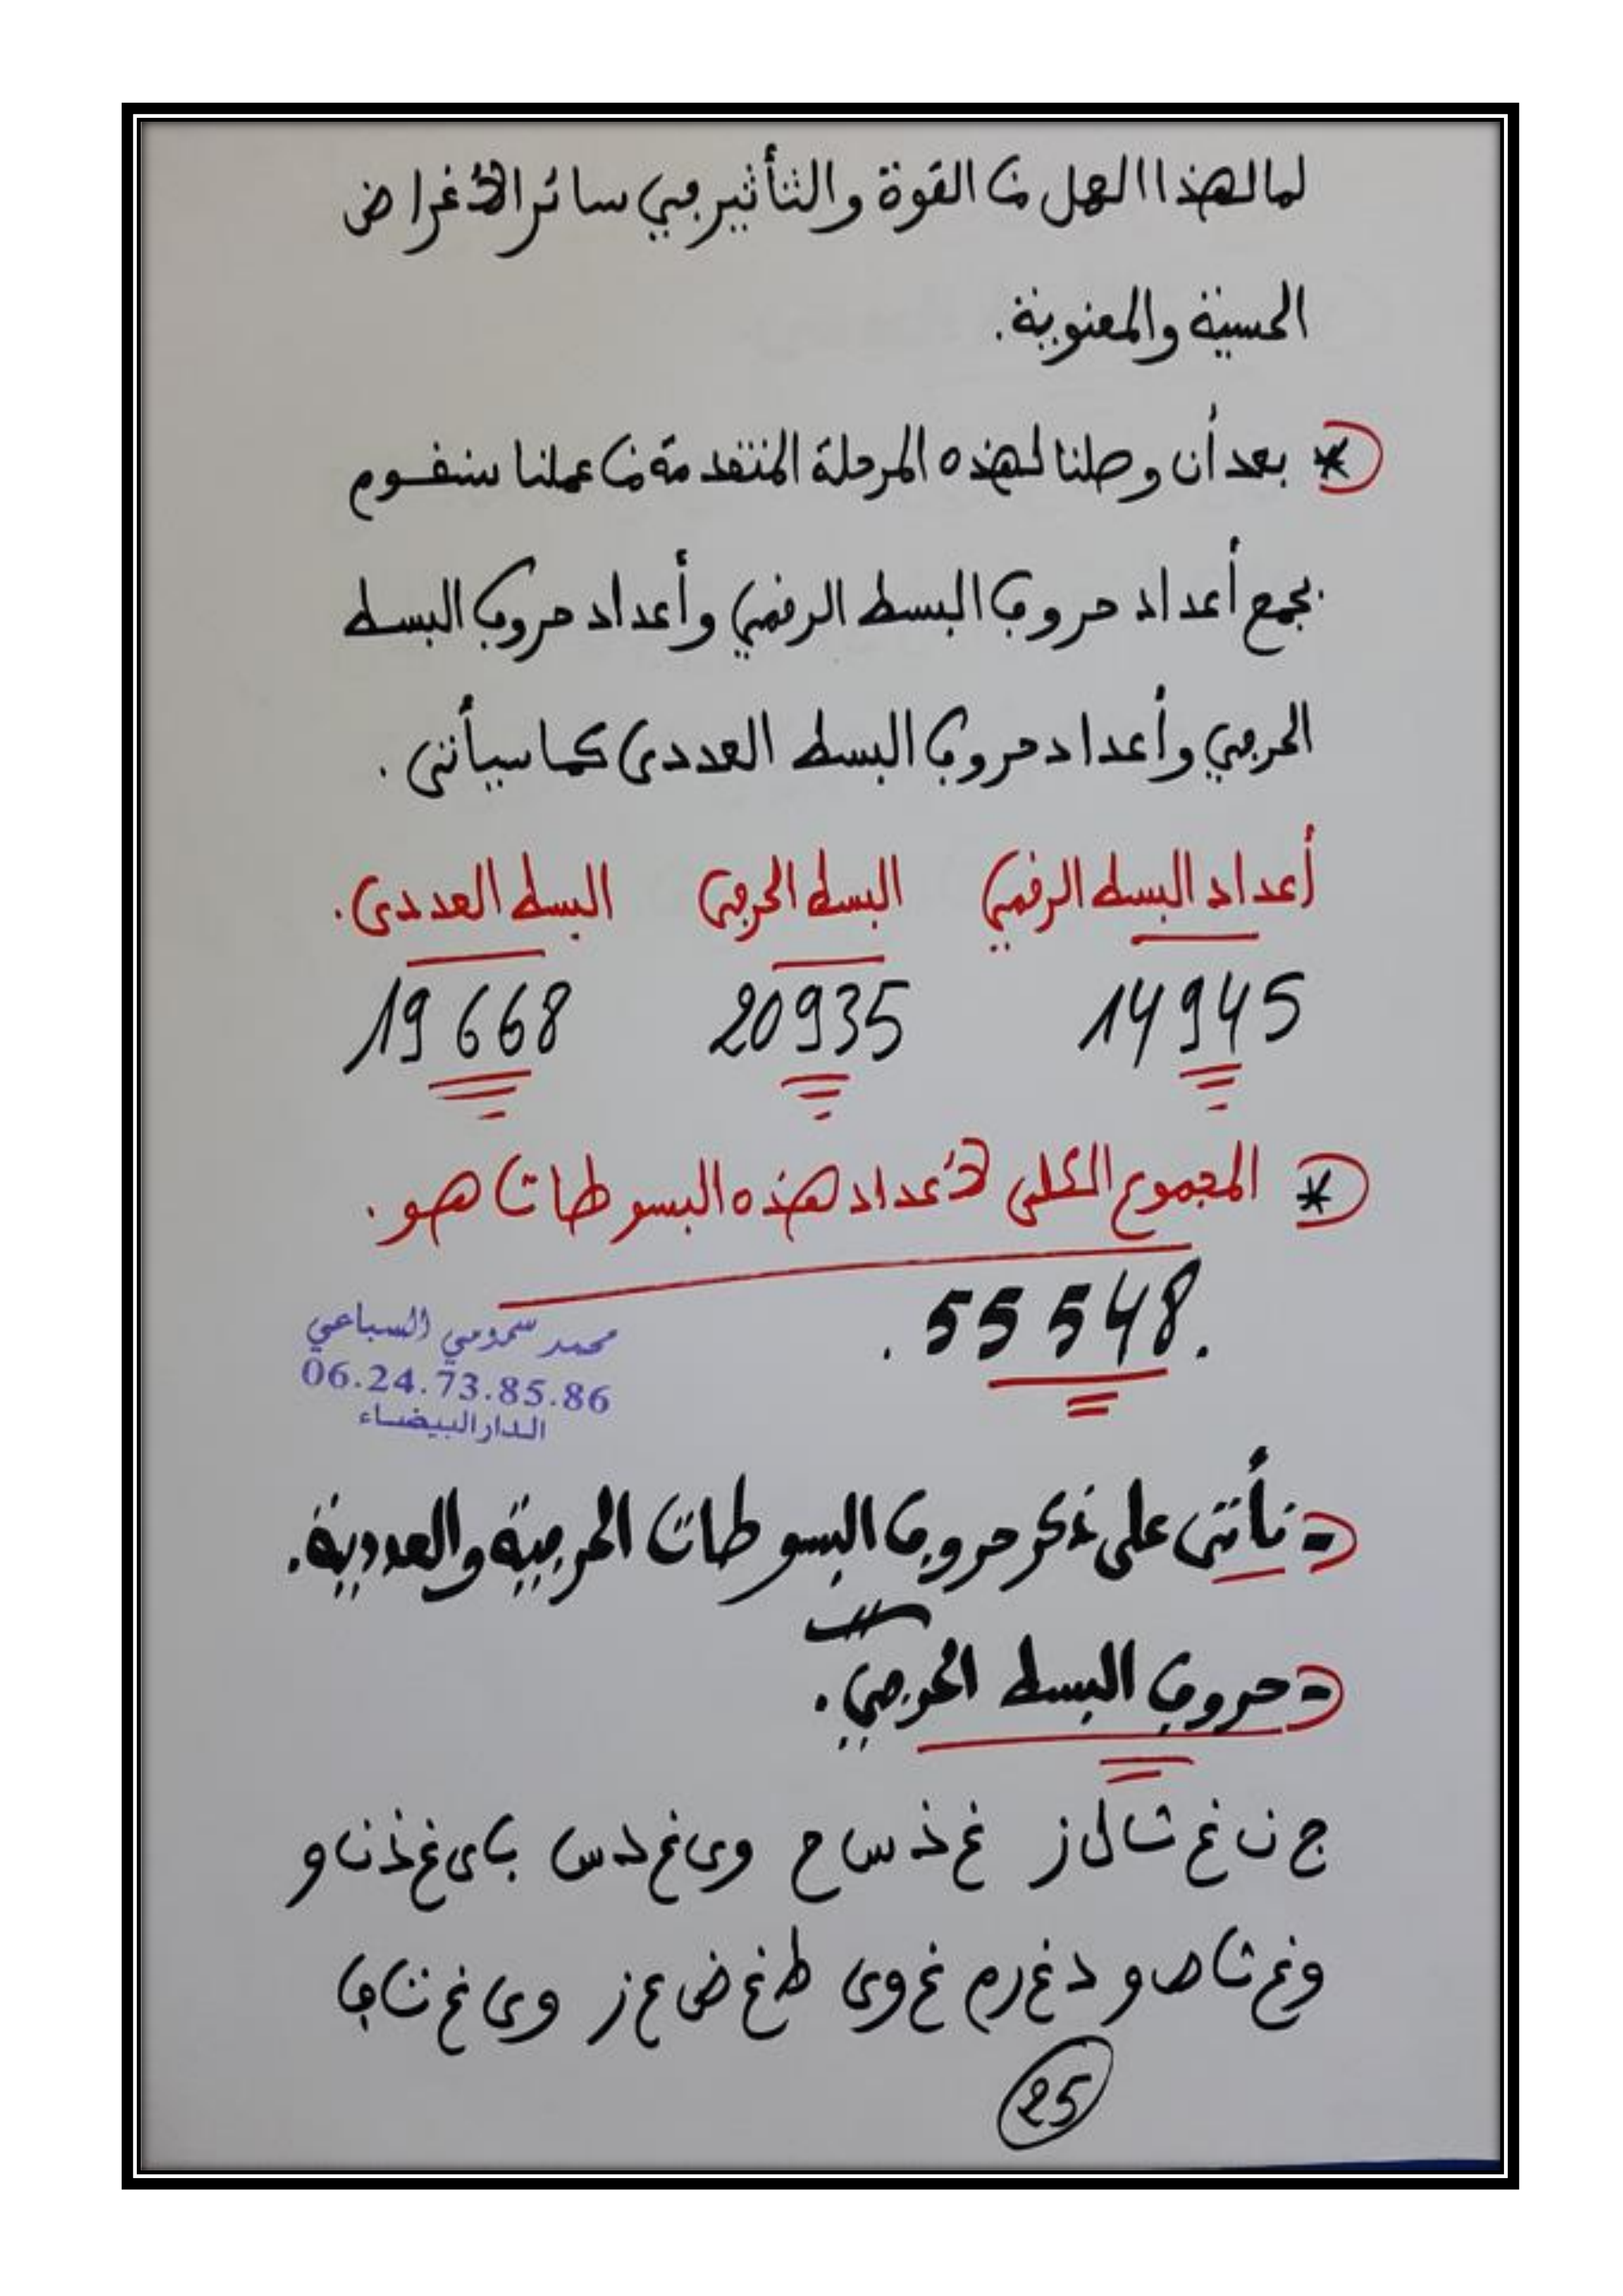 لما لهذا العمل من القوة والتأثير في سائر الأغراض
الحسية والمعنوية.
* بعد أن وصلنا لهذه المرحلة المتقدمة من عملنا سنقوم
بجمع أعداد حروف البسط الرقمي وأعداد حروف البسط
الحرفي وأعداد حروف البسط العددي كما سيأتي.
أعداد البسط الرقمي البسط الحرفي البسط العددي.
14945 20935 19668
* المجموع الكلي لأعداد هذه البسوطات هو.
. 55548.
محمد سمومي السباعي
06.24.73.85.86
الدار البيضاء
= نأتي على ذكر حروف البسوطات الحرفية والعددية.
= حروف البسط الحرفي.
ج ن غ ش ل ز غ ذ س ح و ى غ د س ب ى غ ذ ن و
و غ ث ص و د غ ر م غ و ى ط غ ض ع ز و ى غ ت ف
25